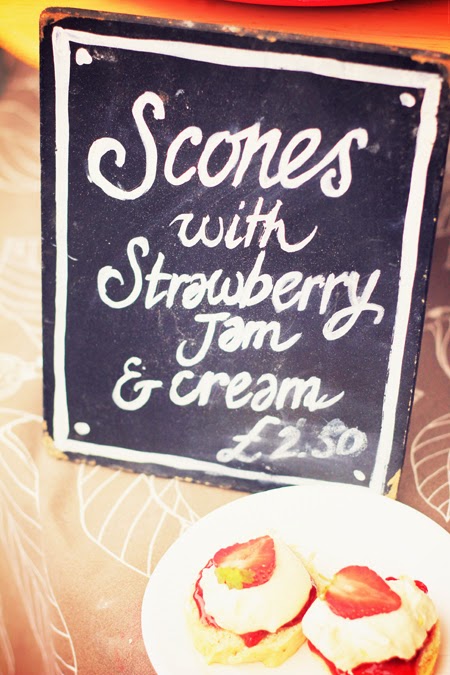 Scones
with
Strawberry
Jam
& cream
£2.50